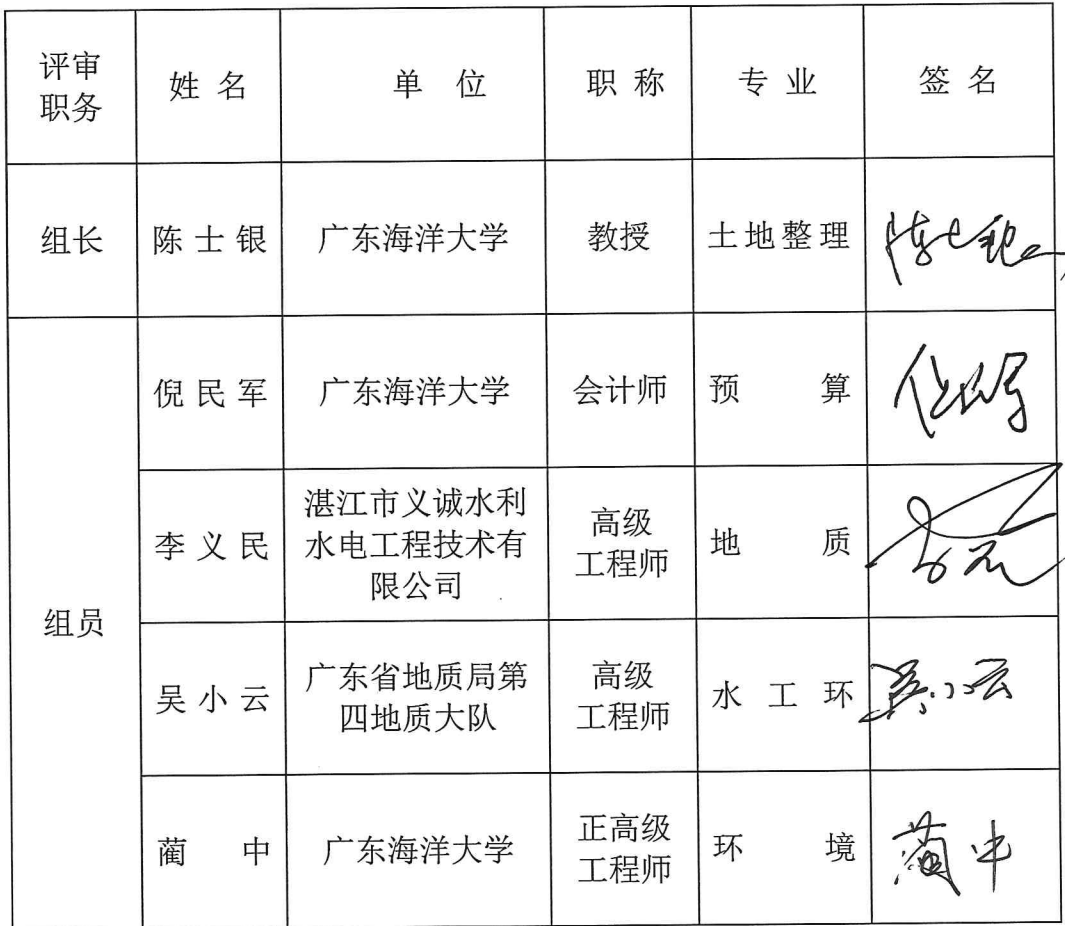 评审职务 姓名 单位 职称 专业 签名
组长 陈士银 广东海洋大学 教授 土地整理 陈士银
组员
倪民军 广东海洋大学 会计师 预算
李义民 湛江市义诚水利水电工程技术有限公司 高级工程师 地质
吴小云 广东省地质局第四地质大队 高级工程师 水工环 吴小云
蔺中 广东海洋大学 正高级工程师 环境 蔺中